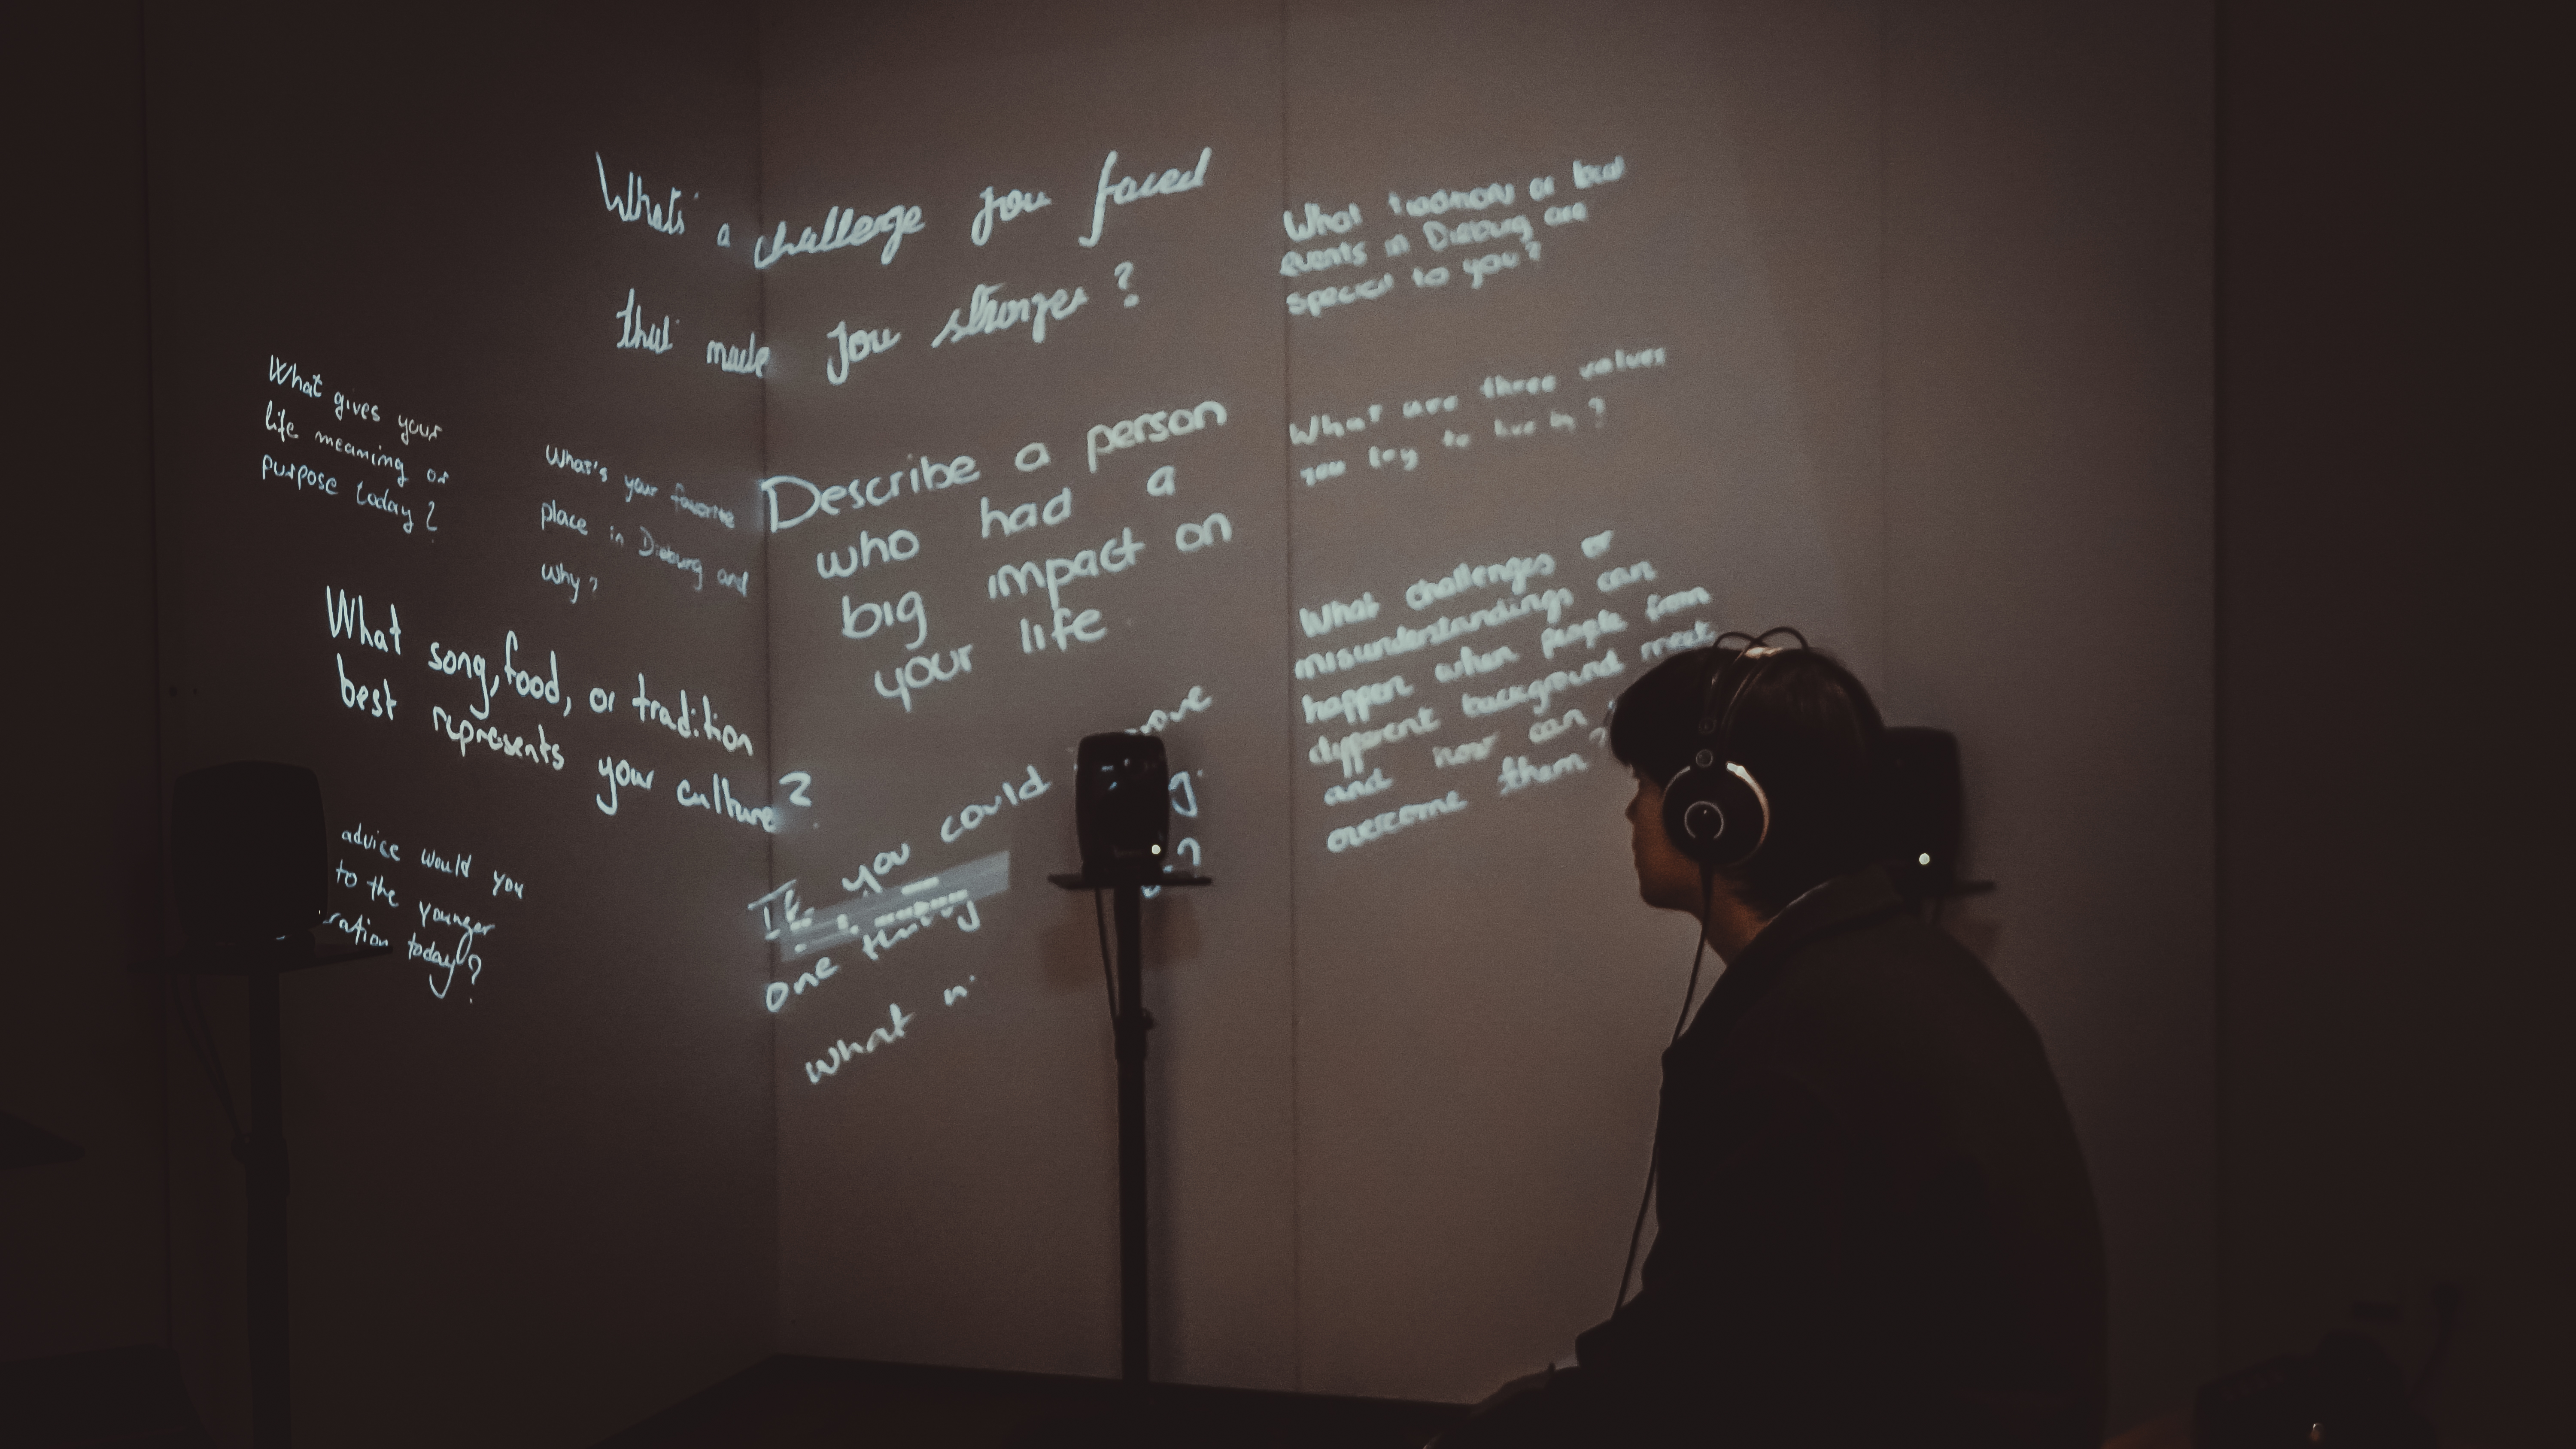 What's a challenge you faced
that made you stronger?
What gives your
life meaning or
purpose today?
What's your favorite
place in Dieburg and
why?
What song, food, or tradition
best represents your culture?
advice would you
to the younger
today?
Describe a person
who had a
big impact on
your life
If you could
one thing
what
What or local
events in Dieburg are
special to you?
What are three values
you try to live by?
What challenges or
misunderstandings can
happen when people from
different background meet
and how can
overcome them?